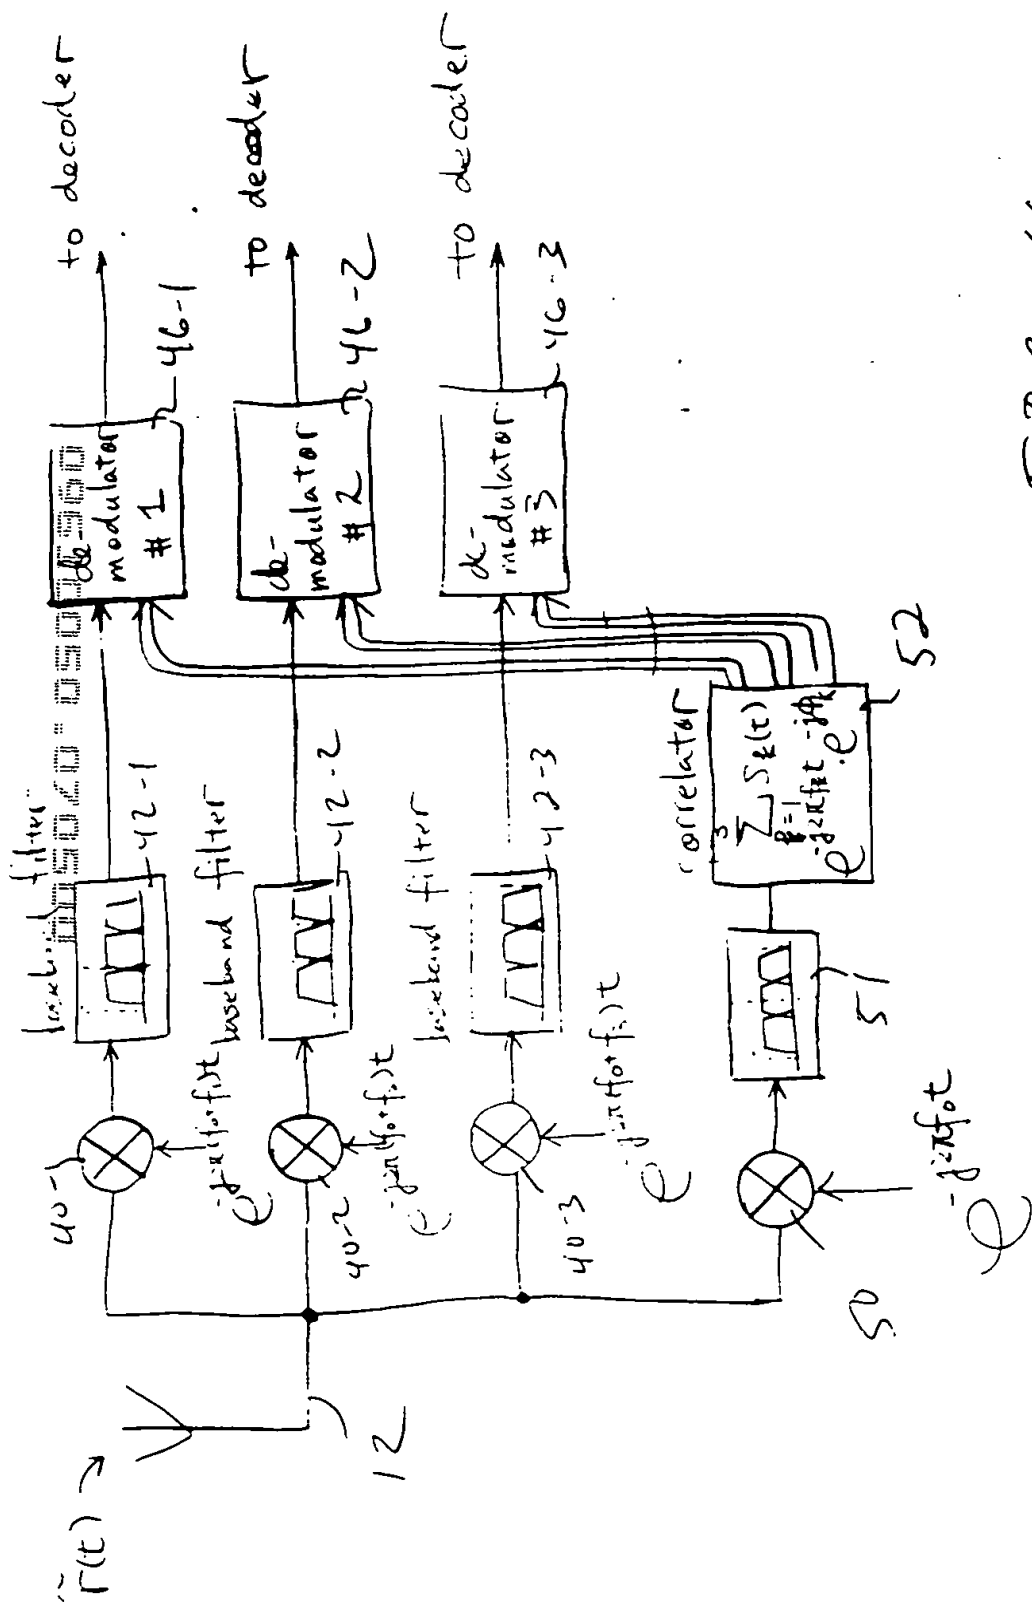 r̃(t)
12
40-1
e^-j2π(f₀+f₁)t
baseband filter
42-1
de-
modulator
#1
46-1
to decoder
40-2
e^-j2π(f₀+f₂)t
baseband filter
42-2
de-
modulator
#2
46-2
to decoder
40-3
e^-j2π(f₀+f₃)t
baseband filter
42-3
de-
modulator
#3
46-3
to decoder
50
e^-j2πf₀t
51
correlator
3
∑ Sₖ(t)
k=1
e^-j2πfₖt · e^-jϕₖ
52